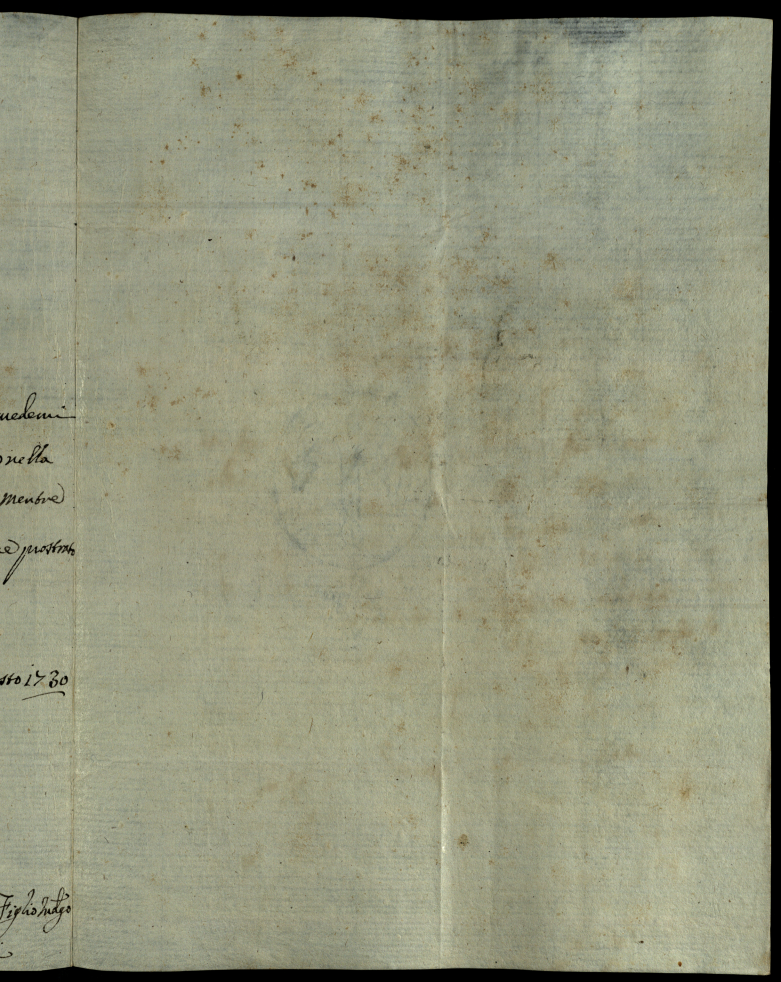 medemi
nella
mentre
prostrato
sto 1730
Figlio